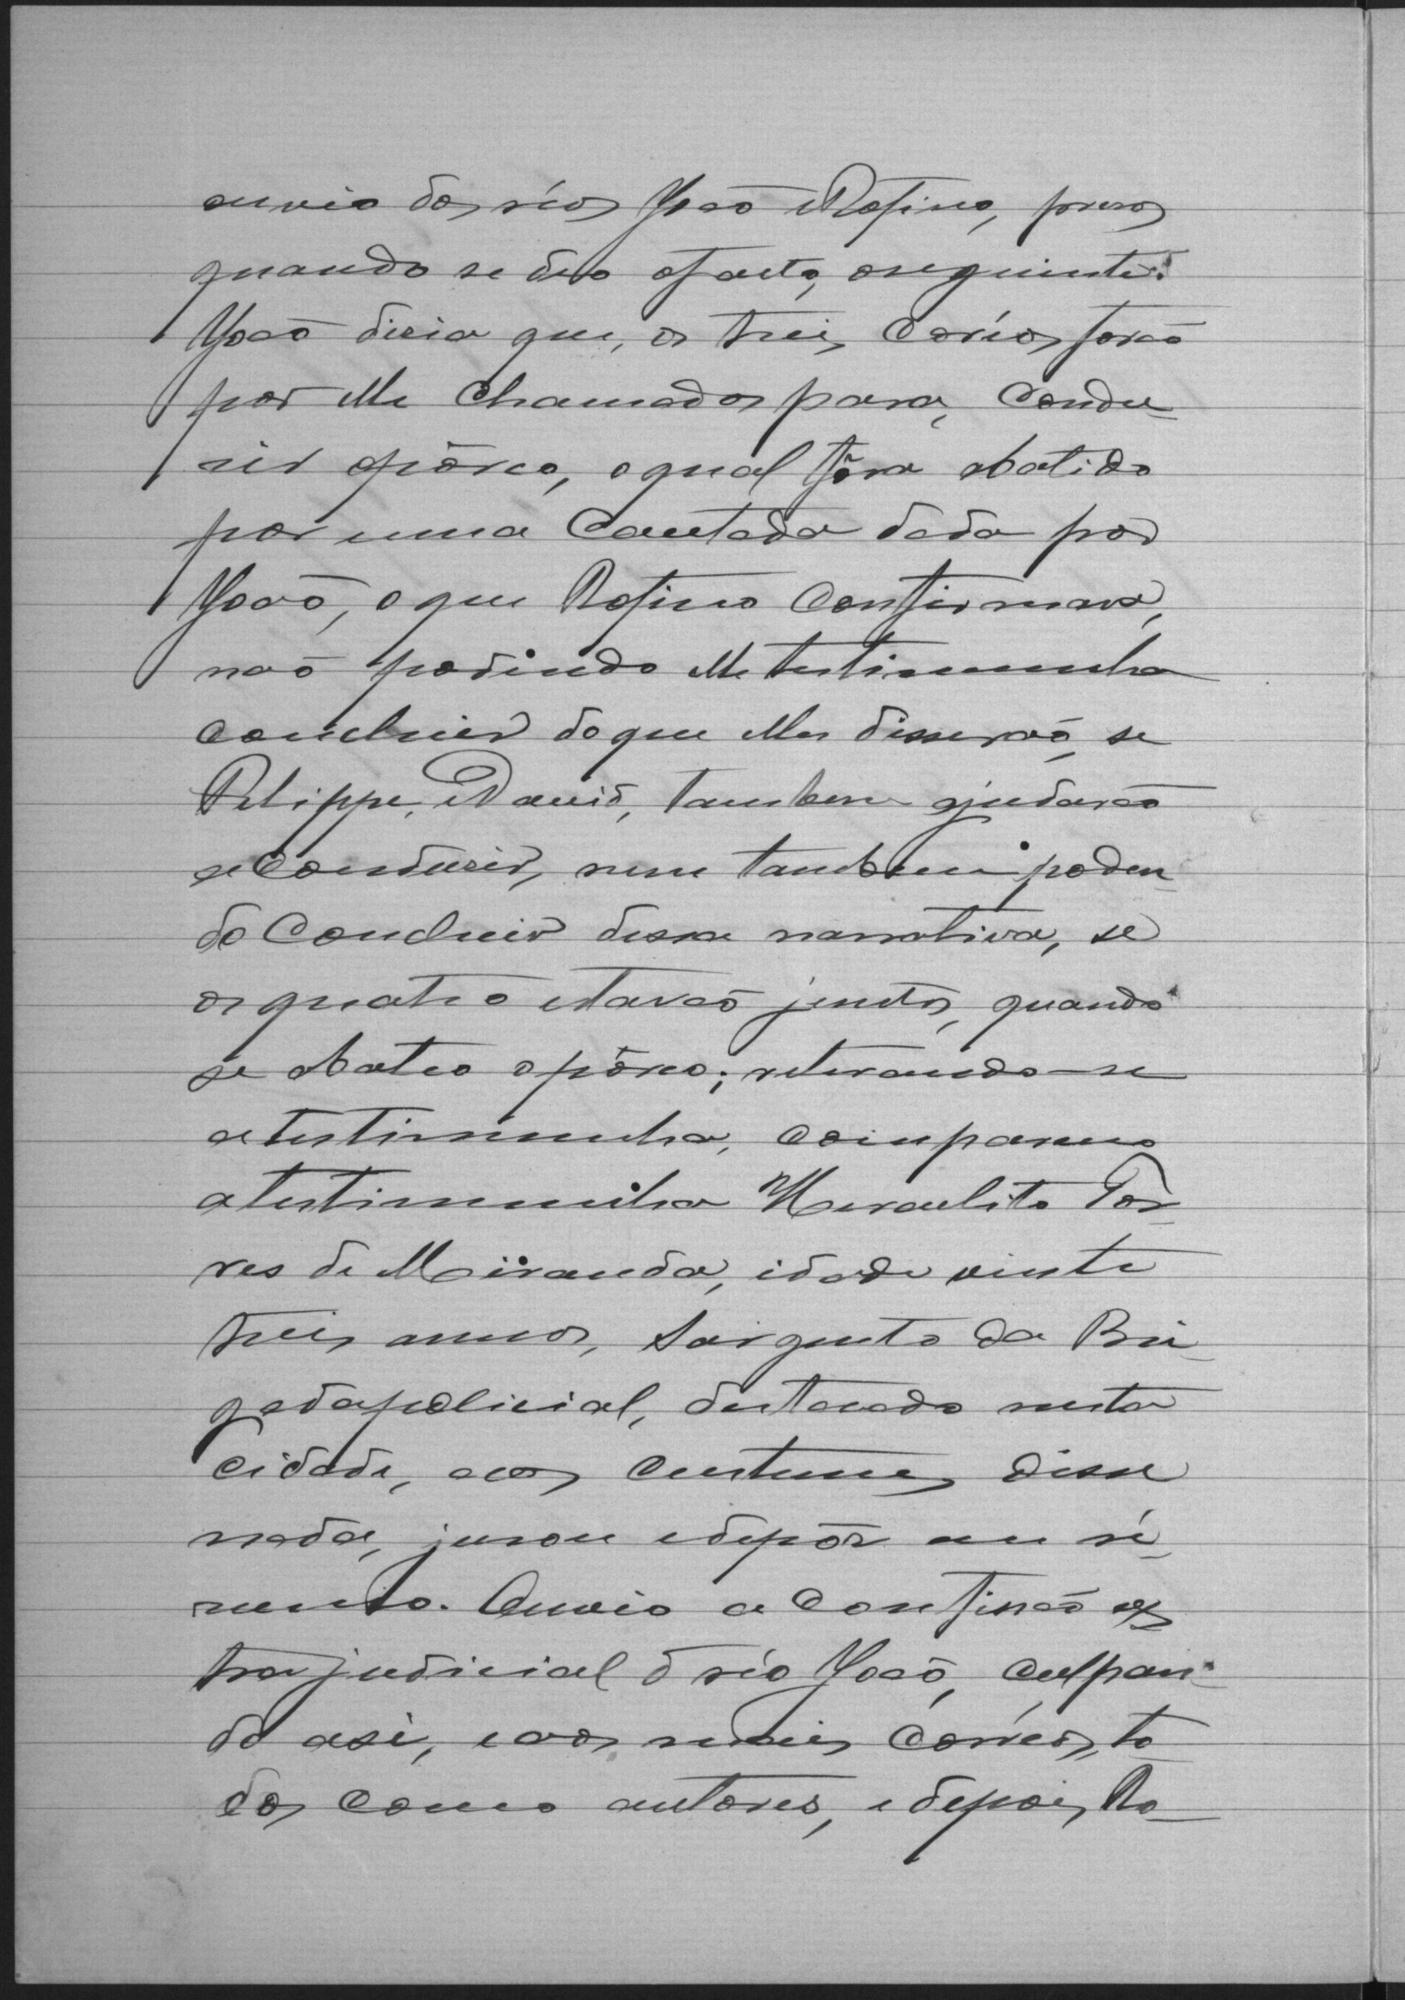 ouvio dos réos João e Rofino, presos
quando se deo o facto, o seguinte:
João disia que, os treis coréos forão
por elle chamados para, condu-
sir o pôrco, o qual fôra abatido
por uma cacetada dada por
João, o que Rofino confirmava,
não podindo elle testimunha
concluir do que elles disserão, se
Felippe, e David, tambem ajudarão
a condusir, nem tambem poden
do concluir dessa narrativa, se
os quatro estavão juntos, quando
se abateo o pôrco; retirando-se
a testimunha, compareceo
a testimunha Heraclito Tor-
res de Miranda, idade vinte
treis annos, Sargento da Bri-
gada policial, destacado nesta
cidade, aos custumes disse
nada, jurou e depôr em ré-
sumo. Ouvio a confissão ex
tra judicial d réo João, culpan-
do a si, e aos mais corréos, to-
dos como autores, e depois Ro-